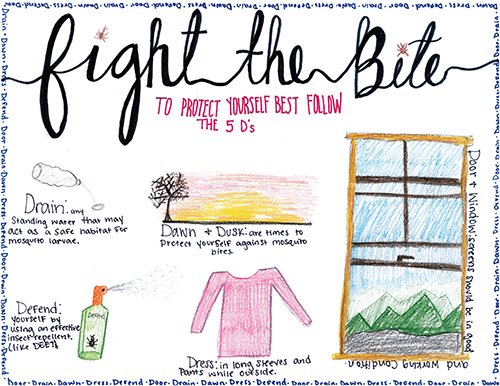 Fight the Bite
TO PROTECT YOURSELF BEST FOLLOW
THE 5 D's
Drain: any
standing water that may
act as a safe habitat for
mosquito larvae.
Dawn + Dusk: are times to
protect yourself against mosquito
bites.
Door + Window: screens should be in good
and working condition
Defend:
yourself by
using an effective
insect repellent,
(like DEET)
Defend
Dress: in long sleeves and
pants while outside.
Drain. Dawn. Dress. Defend. Door. Drain. Dawn. Dress. Defend. Door. Drain. Dawn. Dress. Defend. Door. Drain.